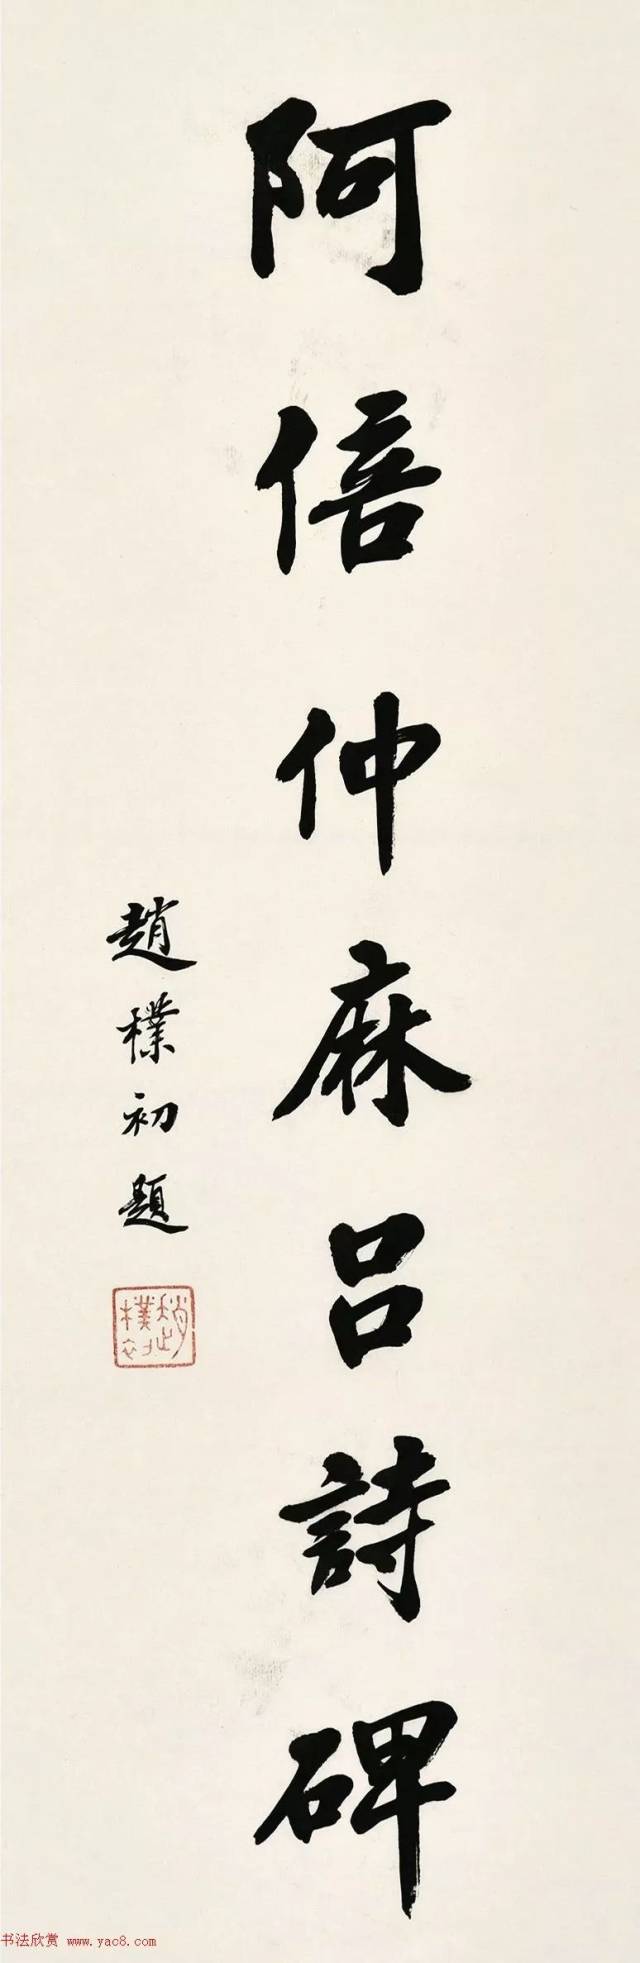 阿倍仲麻吕詩碑
趙樸初題
趙樸初
书法欣赏 www.yac8.com